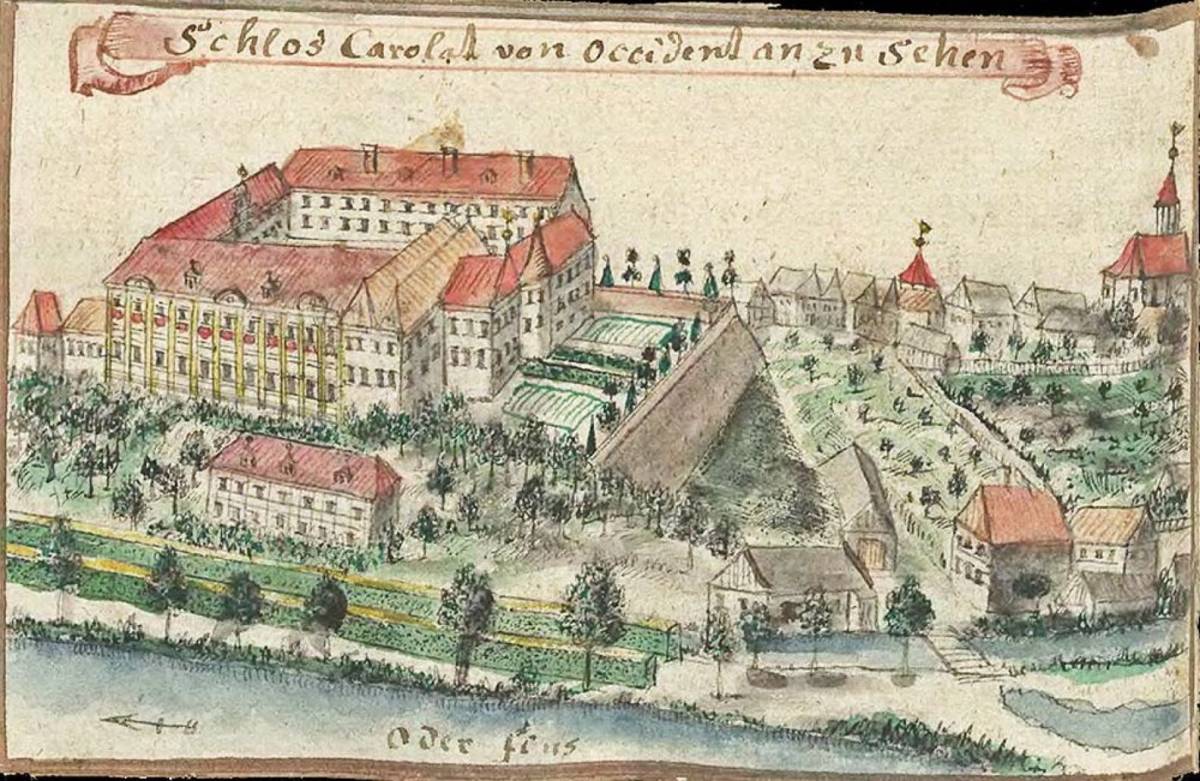 Schlos Carolat von Occident an zu Sehen
Oder flus